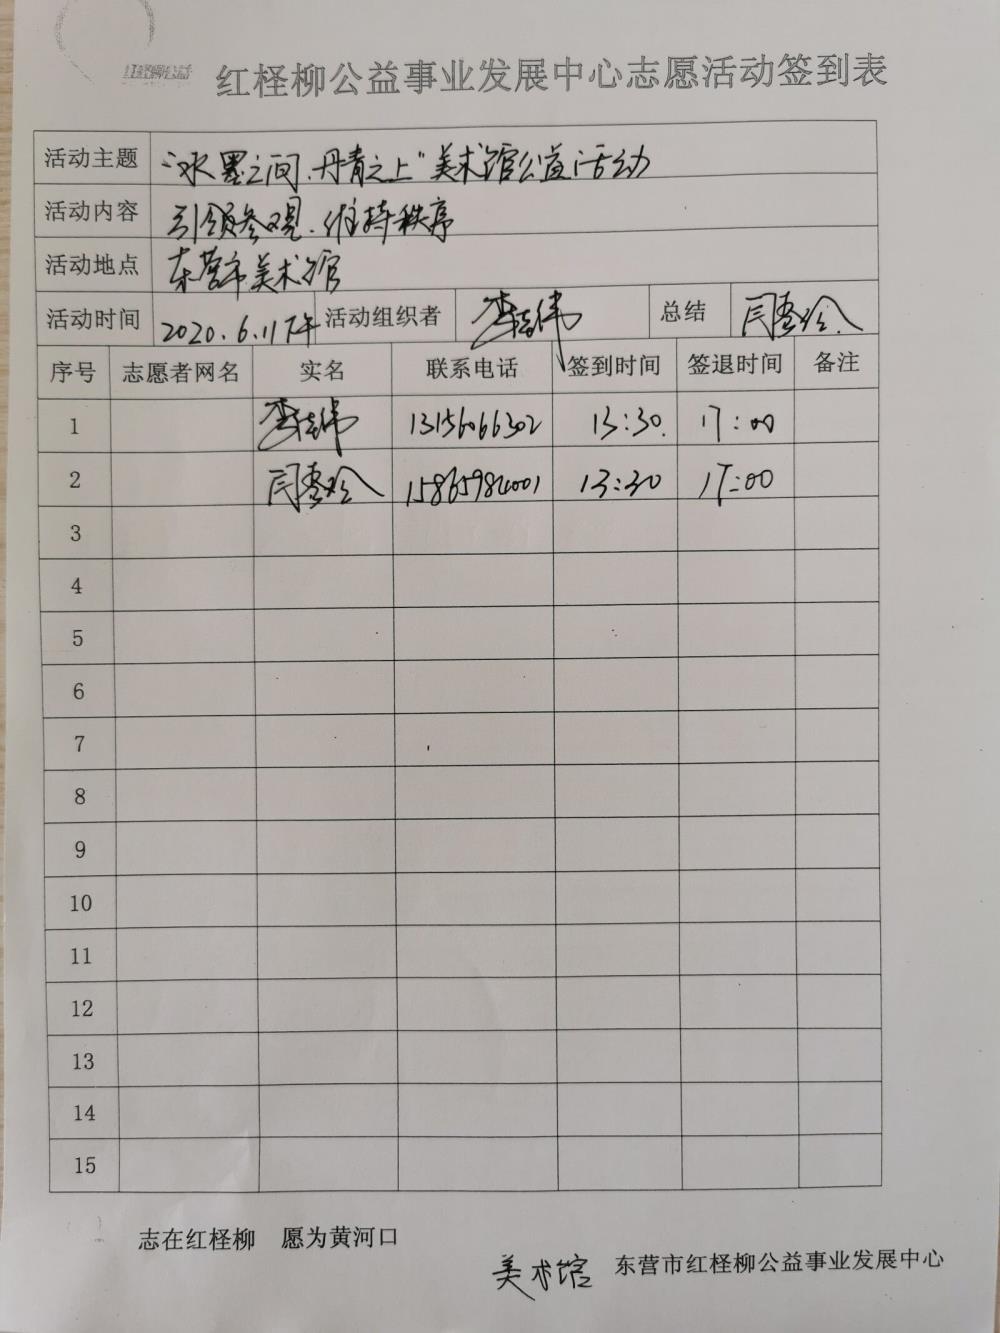 红柽柳公益
红柽柳公益事业发展中心志愿活动签到表
活动主题 “水墨之间、丹青之上”美术馆公益活动
活动内容 引领参观、维持秩序
活动地点 东营市美术馆
活动时间 2020.6.11下午 活动组织者 总结
序号 志愿者网名 实名 联系电话 签到时间 签退时间 备注
1 13156066302 13:30 17:00
2 13:30 17:00
3
4
5
6
7
8
9
10
11
12
13
14
15
志在红柽柳 愿为黄河口
美术馆 东营市红柽柳公益事业发展中心